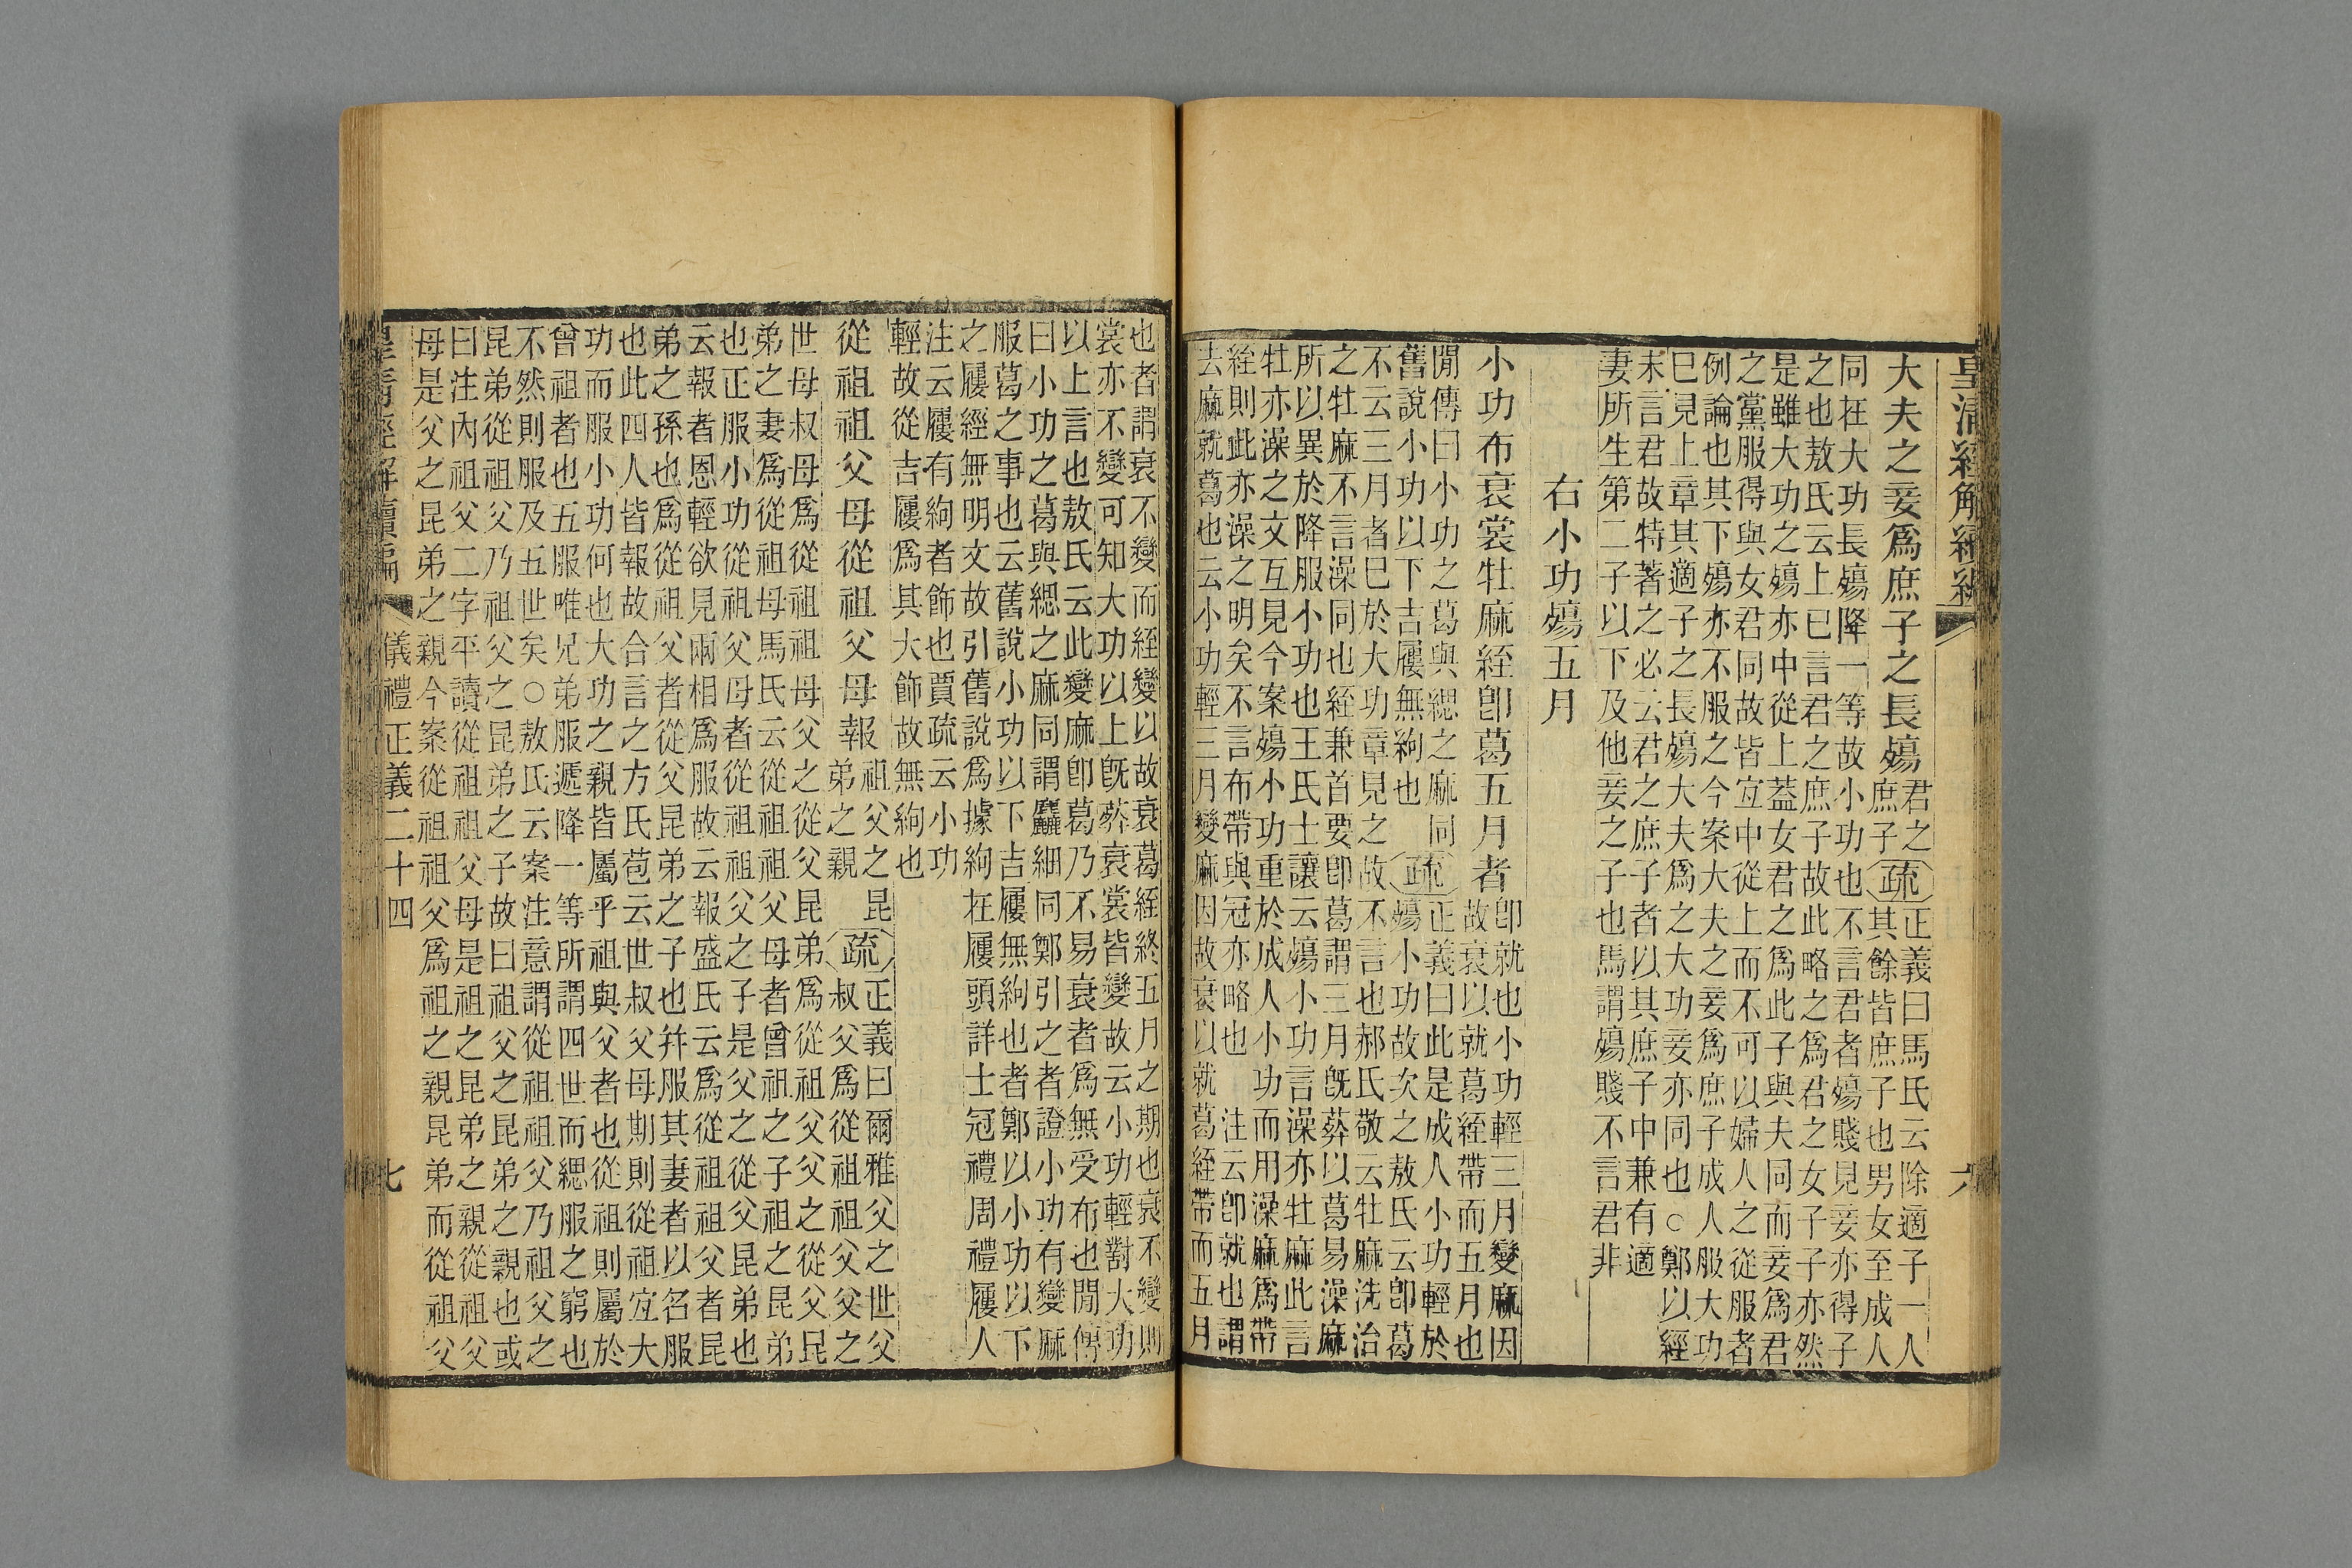 皇清經解續編
六
大夫之妾爲庶子之長殤
君之
庶子
疏
正義曰馬氏云除適子一人
其餘皆庶子也男女至成人
同在大功長殤降一等故小功也不言君者殤賤見妾亦得子
之也敖氏云上已言君之庶子故此略之爲君之女子子亦然
是雖大功之殤亦中從上葢女君之爲此子與夫同而妾爲君
之黨服得與女君同故皆宜中從上而不可以婦人之從服者
例論也其下殤亦不服之今案大夫之妾爲庶子成人服大功
巳見上章其適子之長殤大夫爲之大功妾亦同也○鄭以經
未言君故特著之必云君之庶子者以其庶子中兼有適
妻所生第二子以下及他妾之子也馬謂殤賤不言君非
右小功殤五月
小功布衰裳牡麻絰卽葛五月者
卽就也小功輕三月變麻因
故衰以就葛絰帶而五月也
閒傳曰小功之葛與緦之麻同
舊說小功以下吉屨無絇也
疏
正義曰此是成人小功輕於
殤小功故次之敖氏云卽葛
不云三月者已於大功章見之故不言也郝氏敬云牡麻洗治
之牡麻不言澡同也絰兼首要卽葛謂三月旣葬以葛易澡麻
所以異於降服小功也王氏士讓云殤小功言澡亦牡麻此言
牡亦澡之文互見今案殤小功重於成人小功而用澡麻爲帶
絰則此亦澡之明矣不言布帶與冠亦略也 注云卽就也謂
去麻就葛也云小功輕三月變麻因故衰以就葛絰帶而五月
也者謂衰不變而絰變以故衰葛絰終五月之期也衰不變則
裳亦不變可知大功以上旣葬衰裳皆變故云小功輕對大功
以上言也敖氏云此變麻卽葛乃不易衰者爲無受布也閒傳
曰小功之葛與緦之麻同謂麤細同鄭引之者證小功有變麻
服葛之事也云舊說小功以下吉屨無絇也者鄭以小功以下
之屨經無明文故引舊說爲據絇在屨頭詳士冠禮周禮屨人
注云屨有絇者飾也賈疏云小功
輕故從吉屨爲其大飾故無絇也
從祖祖父母從祖父母報
祖父之昆
弟之親
疏
正義曰爾雅父之世父
叔父爲從祖祖父父之
世母叔母爲從祖祖母父之從父昆弟爲從祖父父之從父昆
弟之妻爲從祖母馬氏云從祖祖父母者曾祖之子祖之昆弟
也正服小功從祖父母者從祖祖父之子是父之從父昆弟也
云報者恩輕欲見兩相爲服故云報盛氏云爲從祖祖父者昆
弟之孫也爲從祖父者從父昆弟之子也幷服其妻者以名服
也此四人皆報故合言之方氏苞云世叔父母期則從祖宜大
功而服小功何也大功之親皆屬乎祖與父者也從祖則屬於
曾祖者也五服唯兄弟服遞降一等所謂四世而緦服之窮也
不然則服及五世矣○敖氏云案注意謂從祖祖父乃祖父之
昆弟從祖父乃祖父之昆弟之子故曰祖父之昆弟之親也或
曰注內祖父二字平讀從祖祖父母是祖之昆弟之親從祖父
母是父之昆弟之親今案從祖祖父爲祖之親昆弟而從祖父
皇清經解續編
儀禮正義二十四
七